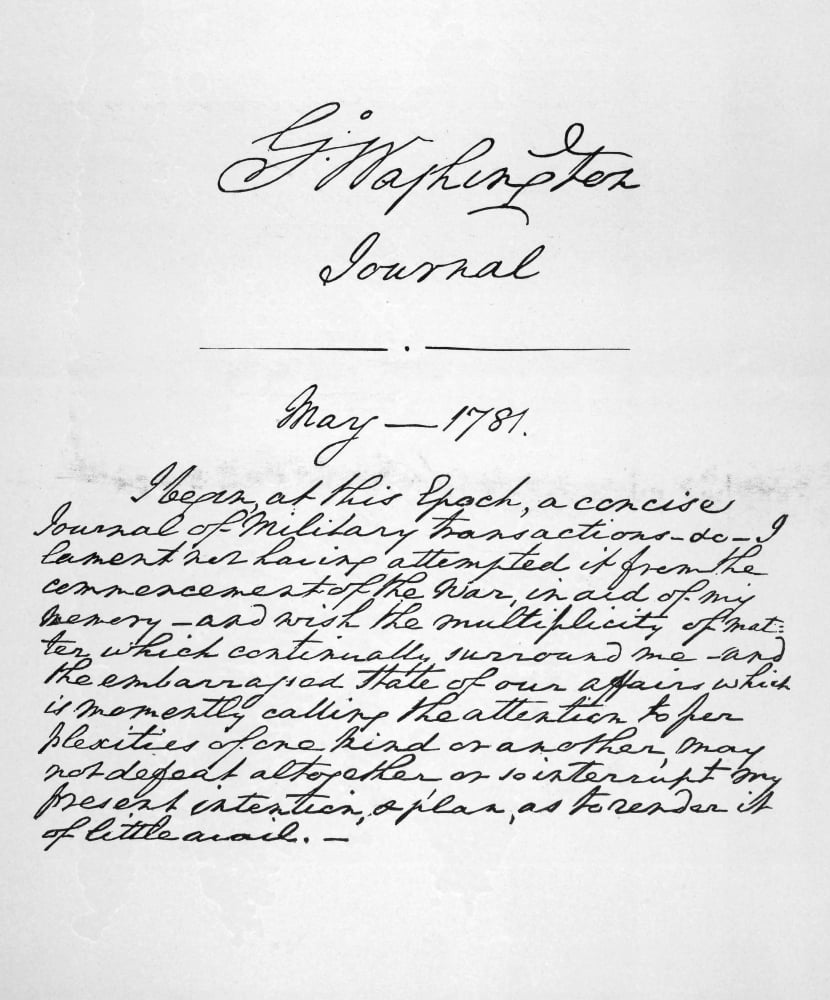 G: Washington
Journal
May — 1781.
I begin, at this Epoch, a concise
Journal of Military transactions – &c – I
lament not having attempted it from the
commencement of the War, in aid of my
memory – and wish the multiplicity of mat=
ter which continually surround me – and
the embarrassed State of our affairs which
is momently calling the attention to per
plexities of one kind or another, may
not defeat altogether or so interrupt my
present intention, & plan, as to render it
of little avail. —